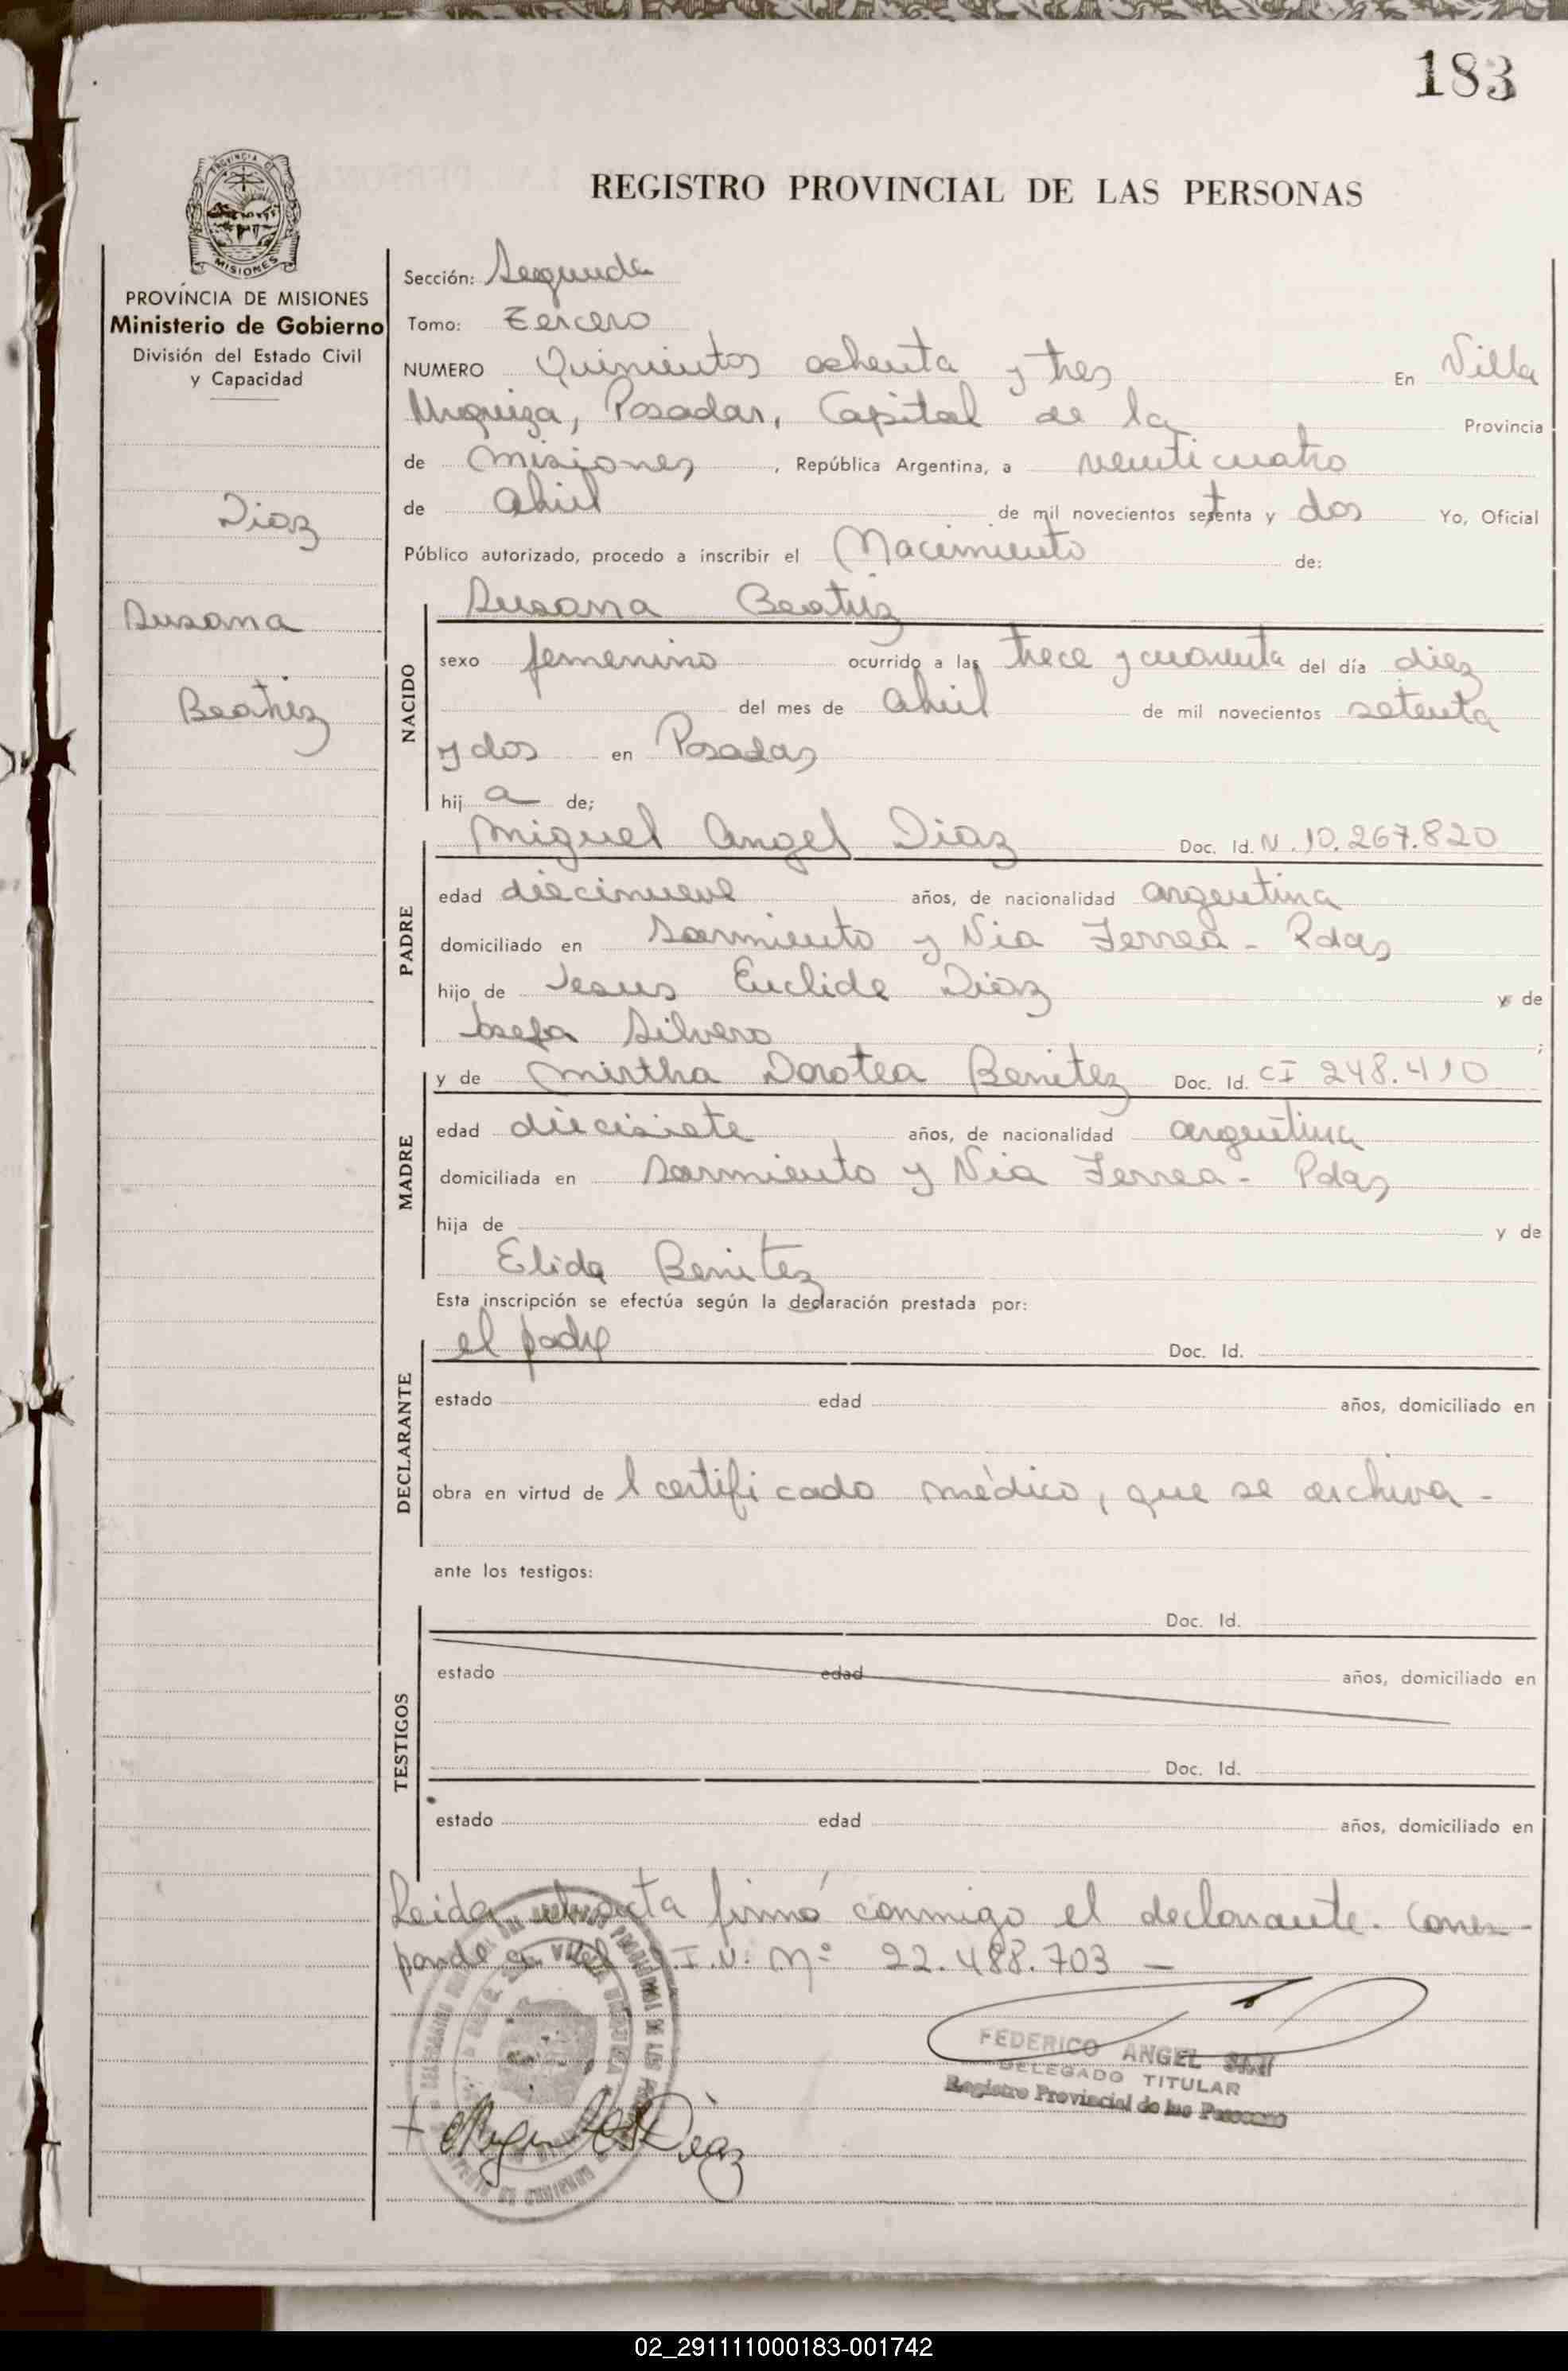 183
PROVINCIA DE
MISIONES
PROVINCIA DE MISIONES
Ministerio de Gobierno
División del Estado Civil
y Capacidad
Diaz
Susana
Beatriz
REGISTRO PROVINCIAL DE LAS PERSONAS
Sección: Segunda
Tomo: Tercero
NUMERO Quinientos ochenta y tres En Villa
Urquiza, Posadas, Capital de la Provincia
de Misiones, República Argentina, a veinticuatro
de abril de mil novecientos setenta y dos Yo, Oficial
Público autorizado, procedo a inscribir el Nacimiento de:
NACIDO
Susana Beatriz
sexo femenino ocurrido a las trece y cuarenta del día diez
del mes de abril de mil novecientos setenta
y dos en Posadas
hij a de;
PADRE
Miguel Angel Diaz Doc. Id. N. 10.267.820
edad diecinueve años, de nacionalidad argentina
domiciliado en Sarmiento y Via Ferrea - Pdas
hijo de Jesus Euclide Diaz y de
Josefa Silvero;
MADRE
y de Mirtha Dorotea Benitez Doc. Id. CI 248.410
edad diecisiete años, de nacionalidad argentina
domiciliada en Sarmiento y Via Ferrea - Pdas
hija de y de
Elida Benitez
Esta inscripción se efectúa según la declaración prestada por:
DECLARANTE
el padre Doc. Id.
estado edad años, domiciliado en
obra en virtud de l certificado médico, que se archiva -
ante los testigos:
TESTIGOS
Doc. Id.
estado edad años, domiciliado en
Doc. Id.
estado edad años, domiciliado en
Leida el acta firmó conmigo el declarante. Corres-
ponde I.U. Nº 22.488.703 -
FEDERICO ANGEL
DELEGADO TITULAR
Registro Provincial de las Personas
Diaz
02_291111000183-001742